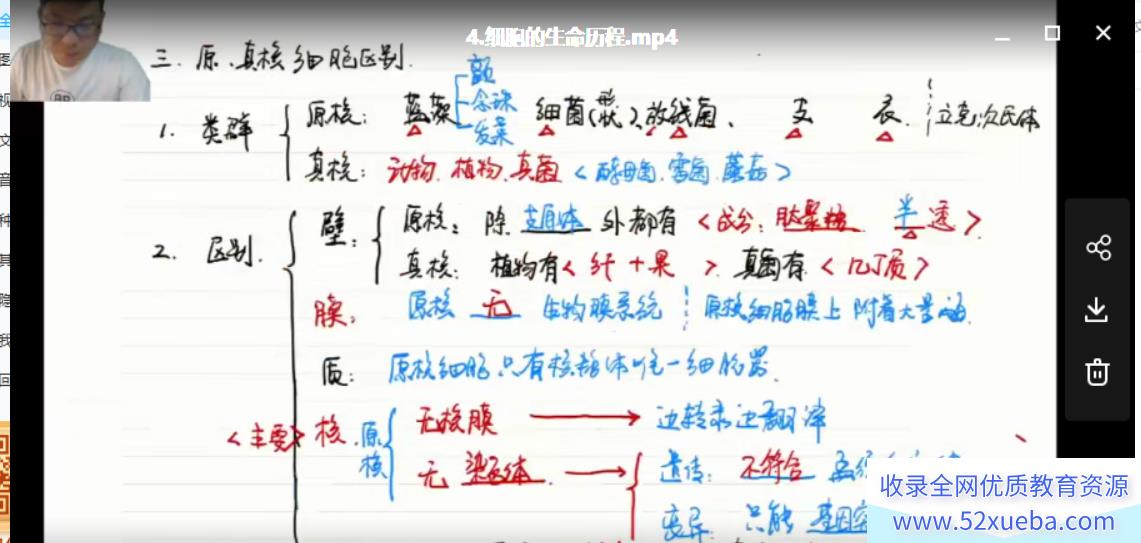 4.细胞的生命历程.mp4
三. 原、真核细胞区别.
1. 类群 原核: 蓝藻 颤 念珠 发菜 细菌(形状)、放线菌、 支 衣. 立克次氏体
真核: 动物. 植物. 真菌 <酵母菌. 霉菌. 蘑菇>
2. 区别. 壁: 原核: 除 支原体 外都有 <成分: 肽聚糖 半透>
真核: 植物有<纤+果>. 真菌有<几丁质>
膜: 原核 无 生物膜系统 原核细胞膜上附着大量酶.
质: 原核细胞只有核糖体唯一细胞器.
<主要> 核. 原核 无核膜 → 边转录边翻译
无 染色体. → 遗传: 不符合
变异: 只能
收录全网优质教育资源
www.52xueba.com